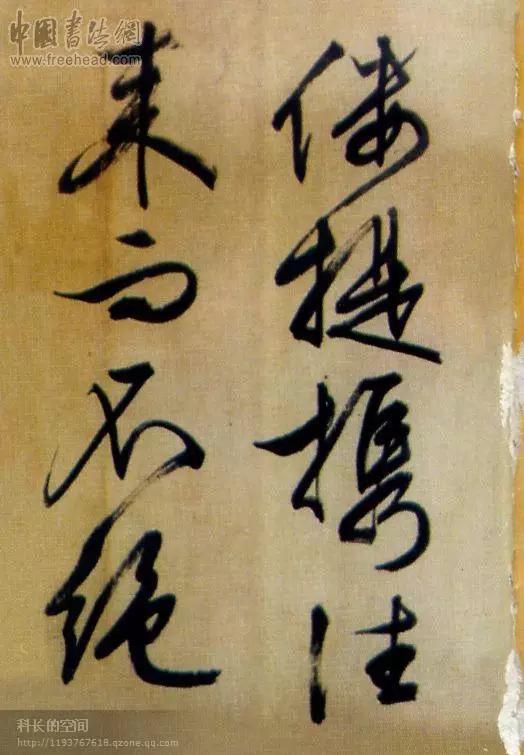 中国书法網
www.freehead.com
偻提携往
来而不绝
科长的空间
http://1193767618.qzone.qq.com